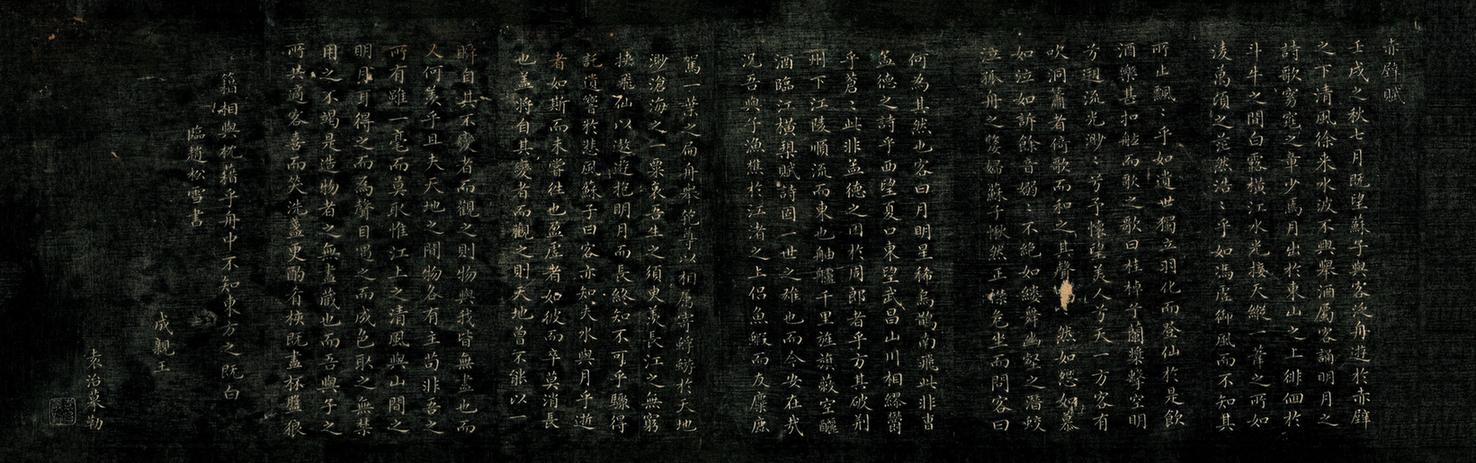 赤壁賦
壬戌之秋七月既望蘇子與客泛舟遊於赤壁
之下清風徐來水波不興舉酒屬客誦明月之
詩歌窈窕之章少焉月出於東山之上徘徊於
斗牛之間白露橫江水光接天縱一葦之所如
淩萬頃之茫然浩〻乎如馮虛御風而不知其
所止飄〻乎如遺世獨立羽化而登仙於是飲
酒樂甚扣舷而歌之歌曰桂棹兮蘭槳擊空明
兮遡流光渺〻兮予懷望美人兮天一方客有
吹洞簫者倚歌而和之其聲然如怨如慕
如泣如訴餘音嫋〻不絕如縷舞幽壑之潛蛟
泣孤舟之嫠婦蘇子愀然正襟危坐而問客曰
何為其然也客曰月明星稀烏鵲南飛此非曹
孟德之詩乎西望夏口東望武昌山川相繆鬱
乎蒼〻此非孟德之困於周郎者乎方其破荊
州下江陵順流而東也舳艫千里旌旗蔽空釃
酒臨江橫槊賦詩固一世之雄也而今安在哉
況吾與子漁樵於江渚之上侶魚蝦而友麋鹿
駕一葉之扁舟舉匏尊以相屬寄蜉蝣於天地
渺滄海之一粟哀吾生之須臾羨長江之無窮
挾飛仙以遨遊抱明月而長終知不可乎驟得
託遺響於悲風蘇子曰客亦知夫水與月乎逝
者如斯而未嘗往也盈虛者如彼而卒莫消長
也蓋將自其變者而觀之則天地曾不能以一
瞬自其不變者而觀之則物與我皆無盡也而
又何羨乎且夫天地之間物各有主苟非吾之
所有雖一毫而莫取惟江上之清風與山間之
明月耳得之而為聲目遇之而成色取之無禁
用之不竭是造物者之無盡藏也而吾與子之
所共適客喜而笑洗盞更酌肴核既盡杯盤狼
籍相與枕籍乎舟中不知東方之既白
臨趙松雪書
成親王
袁治摹勒